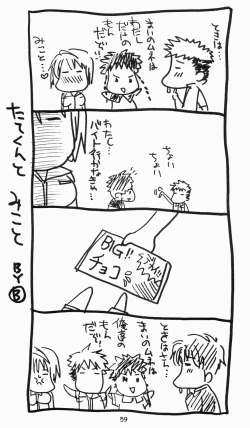 ときは…
まいのムネは
わたし
だけの
もん
だぞ!
みこと…♡
ちょい
ちょい
わたし…
バイト行かなきゃ…
BIG!!
チョコ
ときはさん…
まいのムネは
俺達の
もん
だぞ!
たてくんと みこと
BY B
59